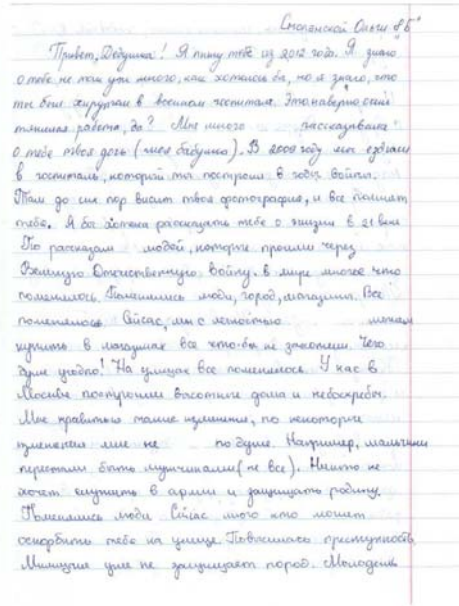 Смоленской Ольги 8"Б"
Привет, Дедушка! Я пишу тебе из 2012 года. Я знаю
о тебе не так уж много, как хотелось бы, но я знаю, что
ты был хирургом в военном госпитале. Это наверно очень
тяжелая работа, да? Мне много рассказывала
о тебе твоя дочь (моя бабушка). В 2009 году мы ездили
в госпиталь, который ты построил в годы войны.
Там до сих пор висит твоя фотография, и все помнят
тебя. Я бы хотела рассказать тебе о жизни в 21 веке
По рассказам людей, которые прошли через
Великую Отечественную войну, в мире многое что
поменялось. Поменялись люди, город, магазины. Все
поменялось. Сейчас, мы с легкостью можем
купить в магазинах все что-бы не захотели. Чего
душе угодно! На улицах все поменялось. У нас в
Москве построили высотные дома и небоскребы.
Мне нравиться такие изменения, но некоторые
изменения мне не по душе. Например, мальчики
перестали быть мужчинами (не все). Никто не
хочет служить в армии и защищать родину.
Поменялись люди. Сейчас мало кто может
оскорбить тебя на улице. Повысилась преступность.
Милиция уже не защищает город. Молодежь